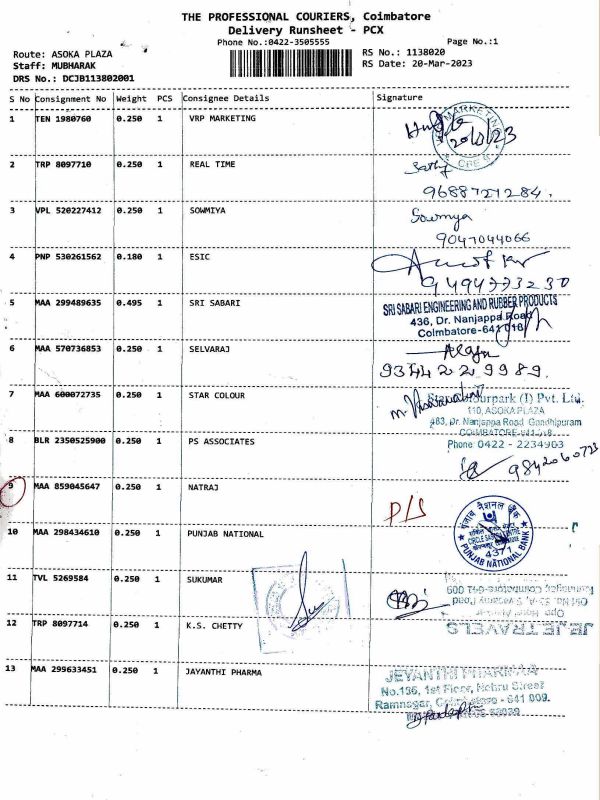 THE PROFESSIONAL COURIERS, Coimbatore
Delivery Runsheet - PCX
Phone No.:0422-3505555
Page No.:1
Route: ASOKA PLAZA
Staff: MUBHARAK
DRS No.: DCJB113802001
RS No.: 1138020
RS Date: 20-Mar-2023
S No Consignment No Weight PCS Consignee Details Signature
1 TEN 1980760 0.250 1 VRP MARKETING
MARKETING
2 TRP 8097710 0.250 1 REAL TIME
9688721284.
3 VPL 520227412 0.250 1 SOWMIYA Sowmya
9047044066
4 PNP 530261562 0.180 1 ESIC
9494773230
5 MAA 299489635 0.495 1 SRI SABARI
SRI SABARI ENGINEERING AND RUBBER PRODUCTS
436, Dr. Nanjappa Road
Coimbatore-641018
6 MAA 570736853 0.250 1 SELVARAJ
9344229989.
7 MAA 600072735 0.250 1 STAR COLOUR
Starcolourpark (I) Pvt. Ltd.
110, ASOKA PLAZA
483, Dr. Nanjappa Road Gandhipuram
COIMBATORE-641018
8 BLR 2350525900 0.250 1 PS ASSOCIATES
Phone: 0422 - 2234903
9842060723
9 MAA 859045647 0.250 1 NATRAJ
P/S
10 MAA 298434610 0.250 1 PUNJAB NATIONAL
पंजाब नैशनल बैंक
CIRCLE SASTRA CENTRE
4377
PUNJAB NATIONAL BANK
11 TVL 5269584 0.250 1 SUKUMAR
12 TRP 8097714 0.250 1 K.S. CHETTY
JEJE TRAVELS
13 MAA 299633451 0.250 1 JAYANTHI PHARMA
JEYANTHI PHARMAA
No.136, 1st Floor, Nehru Street
Ramnagar, Coimbatore - 641 009.